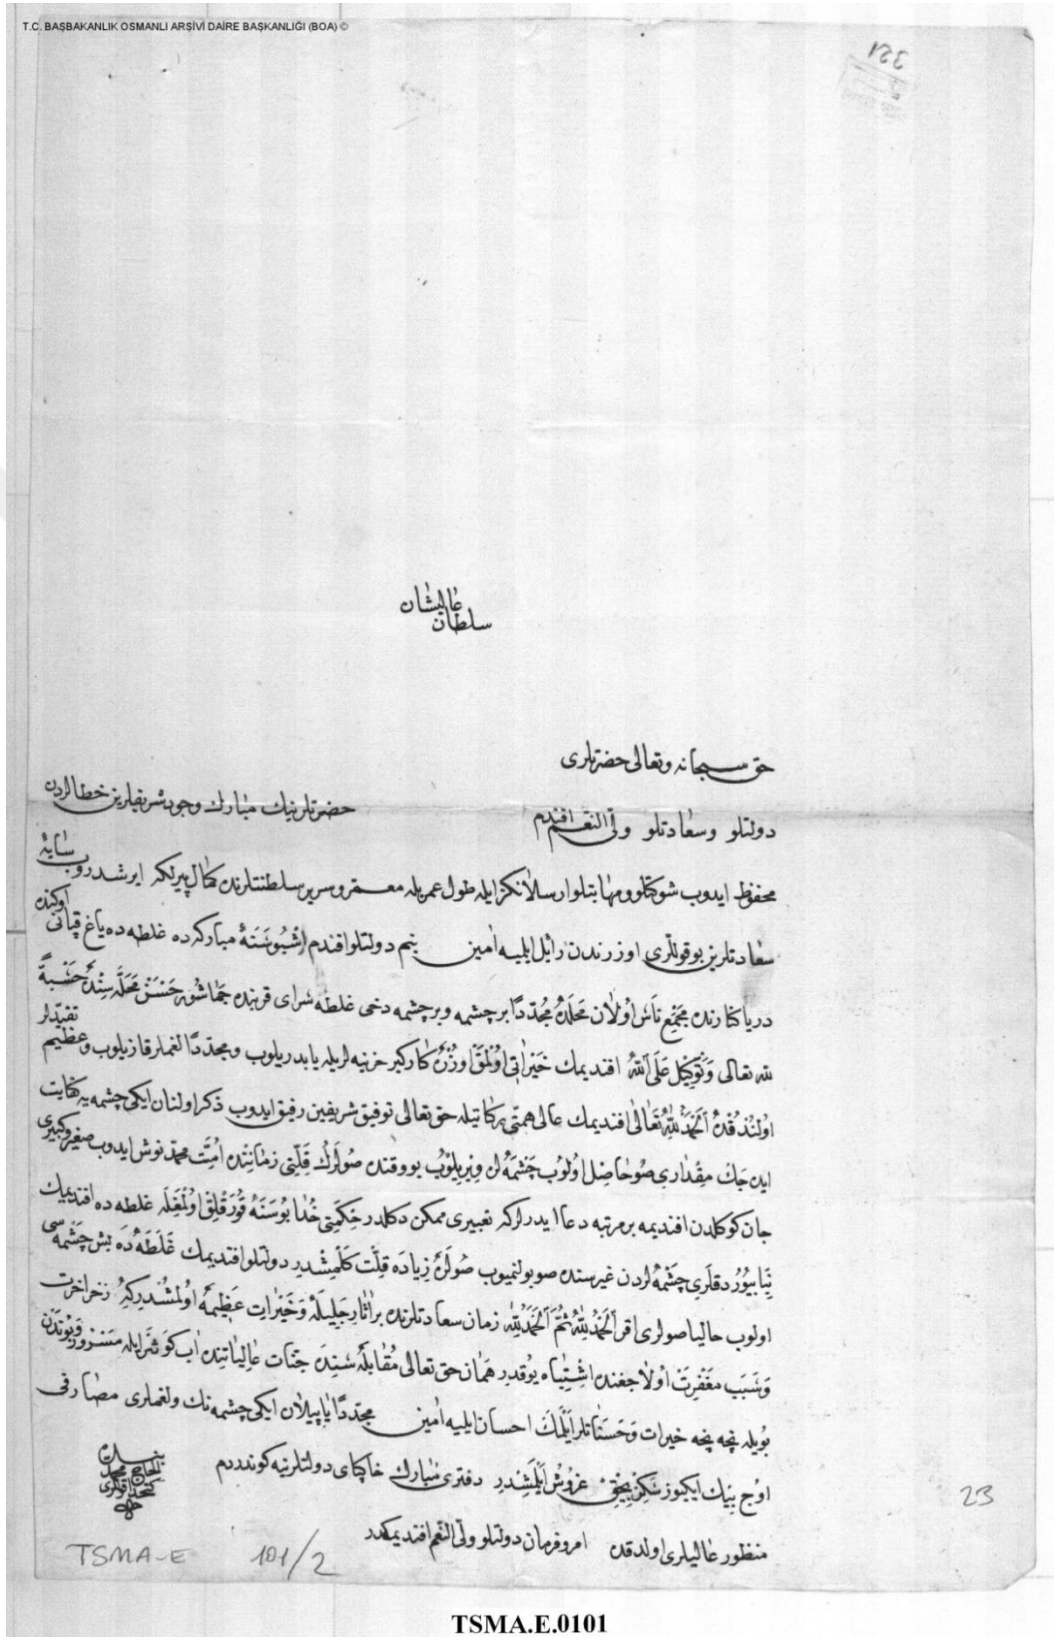 T.C. BAŞBAKANLIK OSMANLI ARŞİVİ DAİRE BAŞKANLIĞI (BOA) ©
321
عاليشان
سلطان
حق سبحانه وتعالى حضرتلرى
دولتلو وسعادتلو ولى النعم افندم حضرتلرينك مبارك وجود شريفلرين خطالردن
محفوظ ايدوب شوكتلو ومهابتلو ارسلانكز ايله طول عمريله معمر وسرير سلطنتلرنده كمال پيرلكه ايرشدروب سايۀ
سعادتلرين بو قوللرى اوزرندن زائل ايليه امين بنم دولتلو افندم اشبو سنۀ مباركه ده غلطه ده ياغ قپانى اوكنده
دريا كنارنده مجمع ناس اولان محلده مجددا بر چشمه وبر چشمه دخى غلطه سراى قربنده حسن محله سنده حسبة
لله تعالى وتوكل على الله افندمك خيراتى اولمق اوزره كاركير خزينه لريله يابدريلوب ومجددا لغملر قازيلوب وعظيم تقيدلر
اولندقده الحمد لله تعالى افندمك عالى همتى بركاتيله حق تعالى توفيق شريفين رفيق ايدوب ذكر اولنان ايكى چشمه يه كفايت
ايده جك مقدارى صو حاصل اولوب چشمه لره ويريلوب بو وقتده صولرك قلتى زماننده امت محمد نوش ايدوب صغير وكبيرى
جان كوكلدن افنديمه بر مرتبه دعا ايدرلر كه تعبيرى ممكن دكلدر حكمتى خدا بو سنه قورقلق اولمغله غلطه ده افنديمك
بيوردقلرى چشمه لردن غيرسنده صو بولنميوب صولره زياده قلت كلمشدر دولتلو افنديمك غلطه ده بش چشمه سى
اولوب حاليا صولرى اقر الحمد لله ثم الحمد لله زمان سعادتلرنده بر اثار جليله وخيرات عظيمه اولمشدر كه ذخر اخرت
وسبب مغفرت اولاجغنده اشتباه يوقدر همان حق تعالى مقابله سنده جنات عالياتنده اب كوثر ايله مسرور وبوندن
بويله نچه نچه خيرات وحسناتلر ايلمك احسان ايليه امين مجددا ياپيلان ايكى چشمه نك ولغملرى مصارفى
اوچ بيك ايكيوز سكز بچق غروش ايلمشدر دفترى مبارك خاكپاى دولتلرينه كوندردم
منظور عاليلرى اولدقده امر وفرمان دولتلو ولى النعم افنديمكدر
بنده
الحاج محمد
كتخدا قوللرى
TSMA-E 101/2
23
TSMA.E.0101